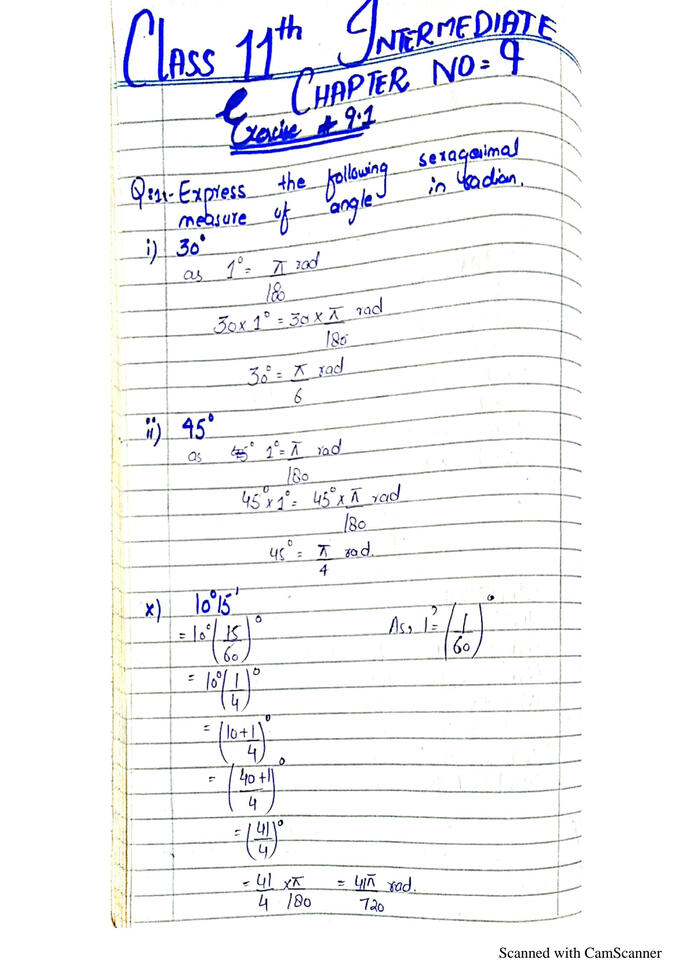 CLASS 11th INTERMEDIATE
CHAPTER NO = 9
Exercise # 9.1
Q:1:- Express the following sexagesimal
measure of angle in radian.
i) 30°
as 1° = π/180 rad
30 x 1° = 30 x π/180 rad
30° = π/6 rad
ii) 45°
as 1° = π/180 rad
45° x 1° = 45° x π/180 rad
45° = π/4 rad
x) 10°15'
= 10°(15/60)° As, 1' = (1/60)°
= 10°(1/4)°
= (10+1/4)°
= (40+1/4)°
= (41/4)°
= 41/4 x π/180 = 41π/720 rad.
Scanned with CamScanner